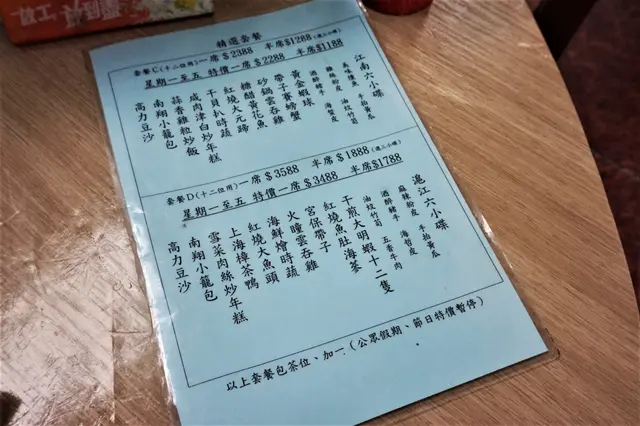 精選套餐
套餐C(十二位用)一席$2388 半席$1288(選三小碟)
星期一至五 特價一席$2288 半席$1188
江南六小碟
美味燻魚 手拍黃瓜
酒醉豬手 油炆竹筍
海蜇皮
黃金蝦球
帶子賽螃蟹
砂鍋雲吞雞
糖醋黃花魚
紅燒大元蹄
干貝扒時蔬
咸肉津白炒年糕
蒜香雞粒炒飯
南翔小籠包
高力豆沙
套餐D(十二位用)一席$3588 半席$1888(選三小碟)
星期一至五 特價一席$3488 半席$1788
滬江六小碟
麻辣粉皮 手拍黃瓜
酒醉豬手 海蜇皮
油炆竹筍 五香牛肉
干煎大明蝦十二隻
紅燒魚肚海蔘
宮保帶子
火瞳雲吞雞
海鮮燴時蔬
紅燒大魚頭
上海樟茶鴨
雪菜肉絲炒年糕
南翔小籠包
高力豆沙
以上套餐包茶位、加一(公眾假期、節日特價暫停)